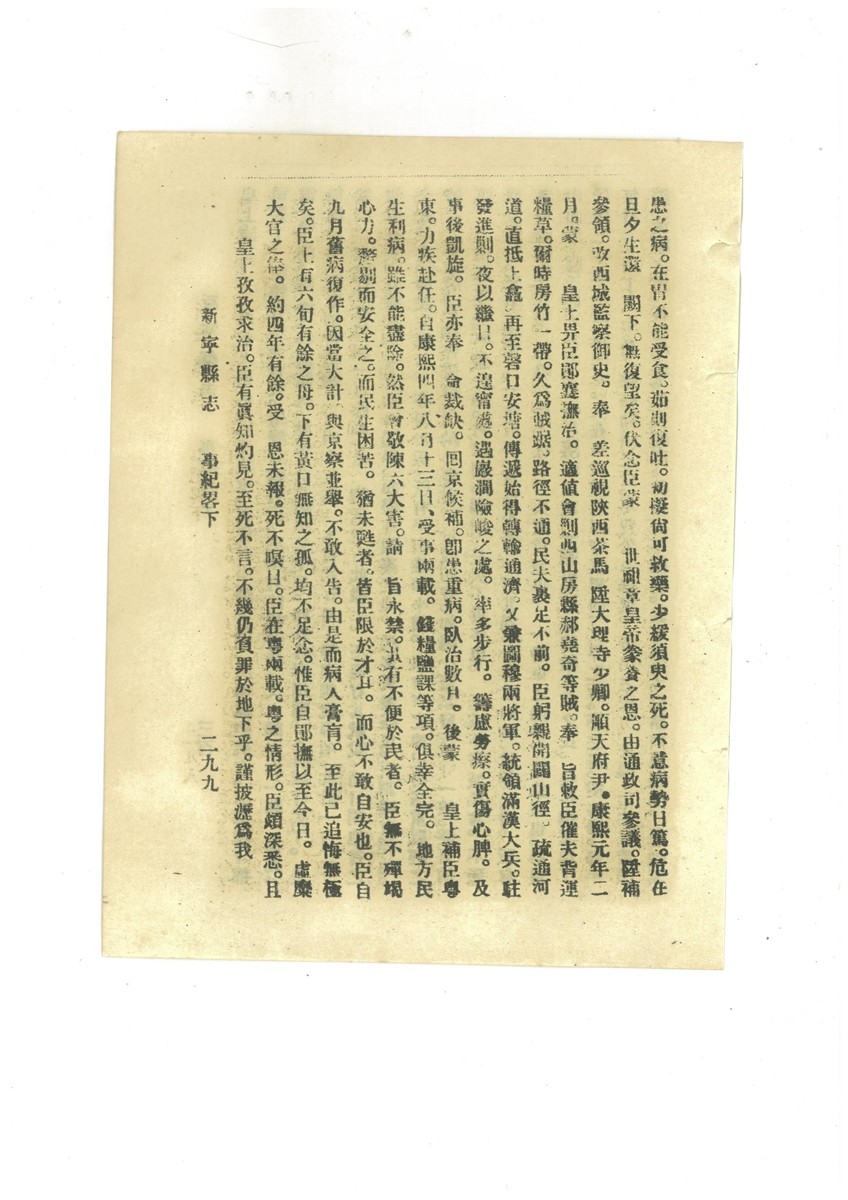 患之病。在胃不能受食。茹則復吐。初擬尙可救藥。少緩須臾之死。不意病勢日篤。危在
旦夕生還　闕下。無復望矣。伏念臣蒙　世祖章皇帝豢養之恩。由通政司參議。陞補
參領。改西城監察御史。奉　差巡視陝西茶馬　陞大理寺少卿。順天府尹。康熙元年二
月。蒙　皇上畀臣鄖襄撫治。適値會剿西山房縣郝堯奇等賊。奉　旨敕臣催夫背運
糧草。爾時房竹一帶。久爲賊踞。路徑不通。民夫裹足不前。臣躬親開闢山徑。疏通河
道。直抵上龕　再至磬口安塘。傳遞始得轉輸通濟。又兼圖穆兩將軍。統領滿漢大兵。駐
發進剿。夜以繼日。不遑甯處。遇巖澗險峻之處。率多步行。籌慮勞瘵。實傷心脾。及
事後凱旋。臣亦奉　命裁缺。回京候補。卽患重病。臥治數月。後蒙　皇上補臣粵
東。力疾赴任。自康熙四年八月十三日、受事兩載。錢糧鹽課等項。俱幸全完。地方民
生利病。雖不能盡除。然臣曾敬陳六大害。請　旨永禁。其有不便於民者。臣無不殫竭
心力。釐剔而安全之。而民生困苦。猶未甦者。皆臣限於才耳。而心不敢自安也。臣自
九月舊病復作。因當大計　與京察並舉。不敢入告。由是而病入膏肓。至此已追悔無極
矣。臣上有六旬有餘之母。下有黃口無知之孤。均不足念。惟臣自鄖撫以至今日。虛糜
大官之俸。約四年有餘。受　恩未報。死不瞑目。臣在粵兩載。粵之情形。臣頗深悉。且
皇上孜孜求治。臣有眞知灼見。至死不言。不幾仍負罪於地下乎。謹披瀝爲我
新寧縣志　事紀畧下　二九九